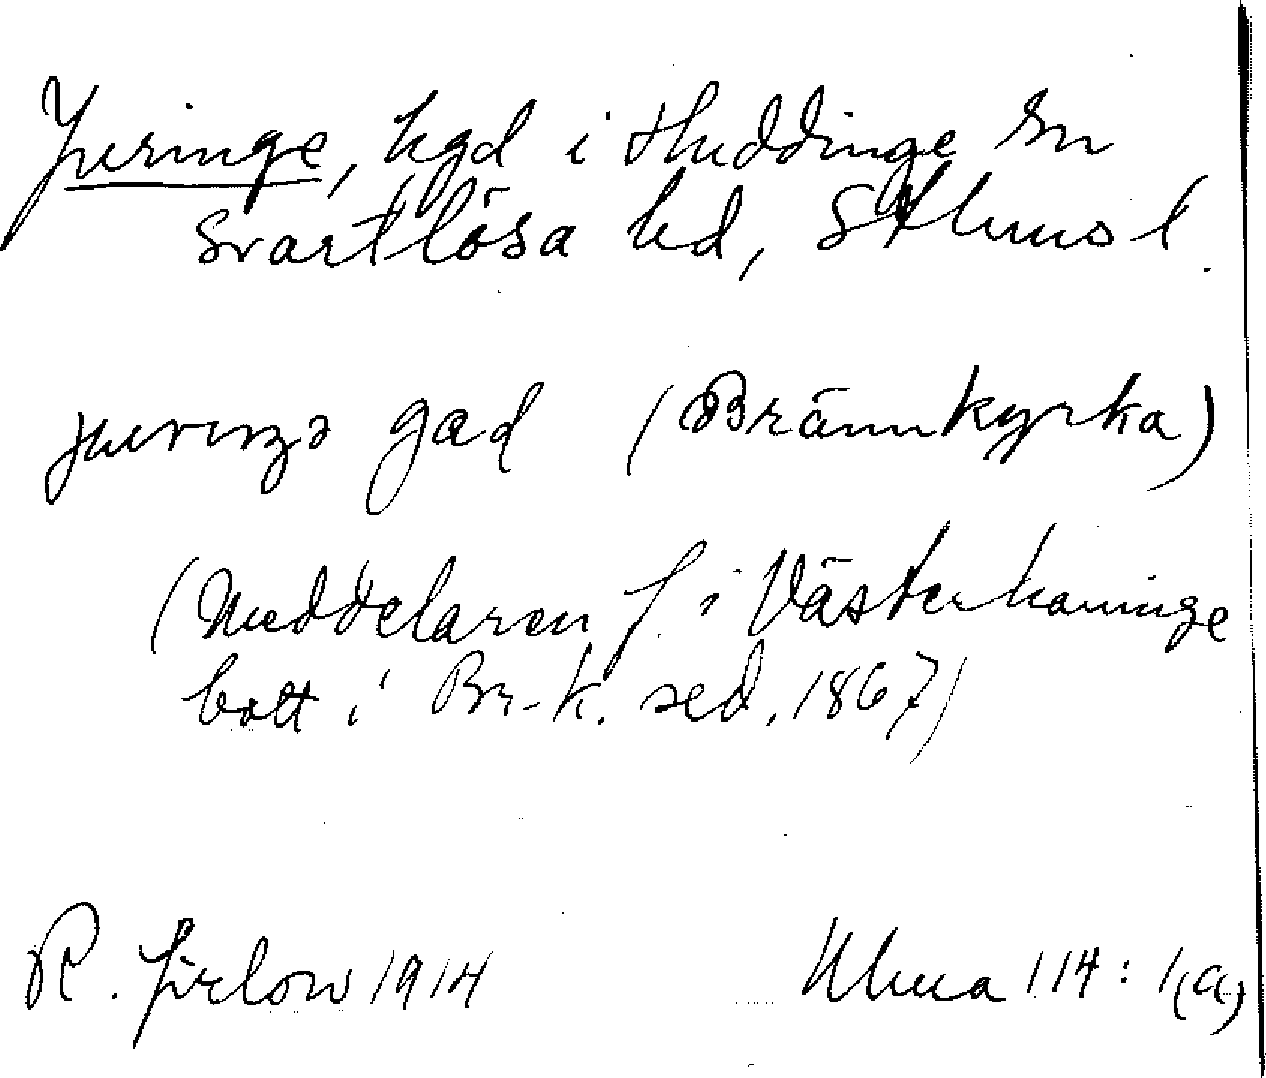 Juringe, hgd i Huddinge sn
Svartlösa hd, Sthlms l.
gad (Brännkyrka)
(Meddelaren f. i Västerhaninge
bott i Br-k. sed. 1867)
R. Jirlow 1914 Ulma 114: 1(a)